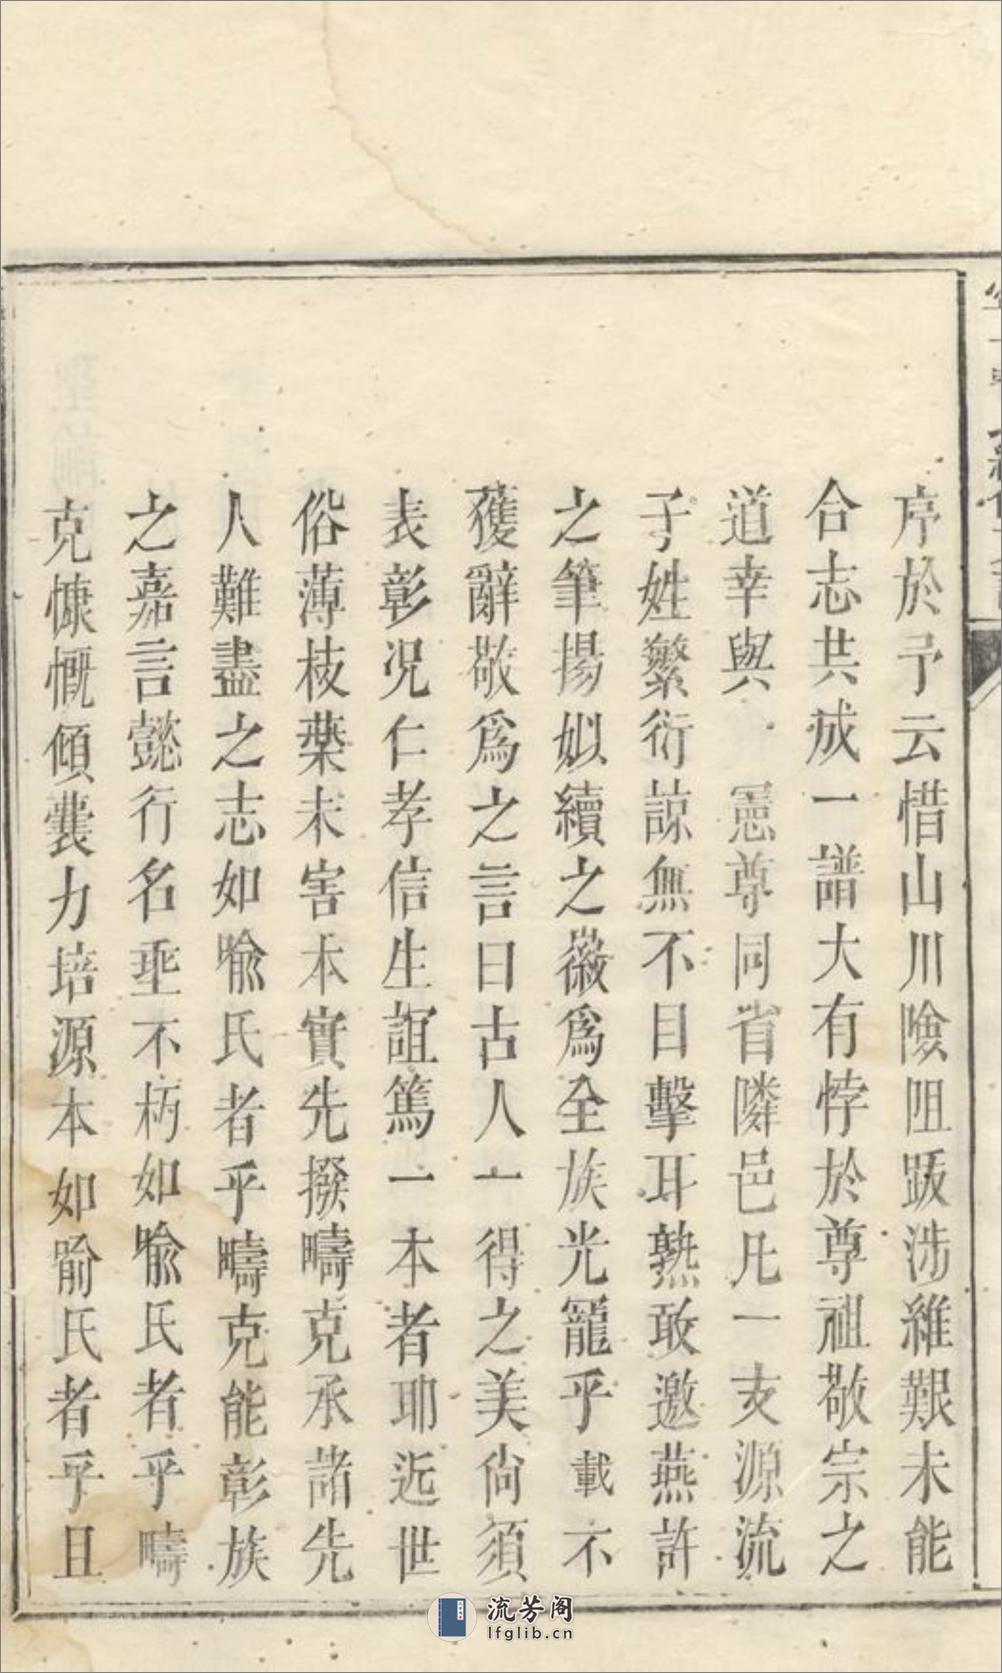 序於予云惜山川險阻跋涉維艱未能
合志共成一譜大有悖於尊祖敬宗之
道幸與 憲尊同省隣邑凡一支源流
子姓繁衍諒無不目擊耳熟敢邀燕許
之筆揚姒續之徽爲全族光寵乎載不
獲辭敬爲之言曰古人一得之美尙須
表彰况仁孝信生誼篤一本者耶近世
俗薄枝葉未害本實先撥疇克承諸先
人難盡之志如喩氏者乎疇克能彰族
之嘉言懿行名垂不朽如喩氏者乎疇
克慷慨傾囊力培源本如喻氏者乎且
流芳阁
lfglib.cn